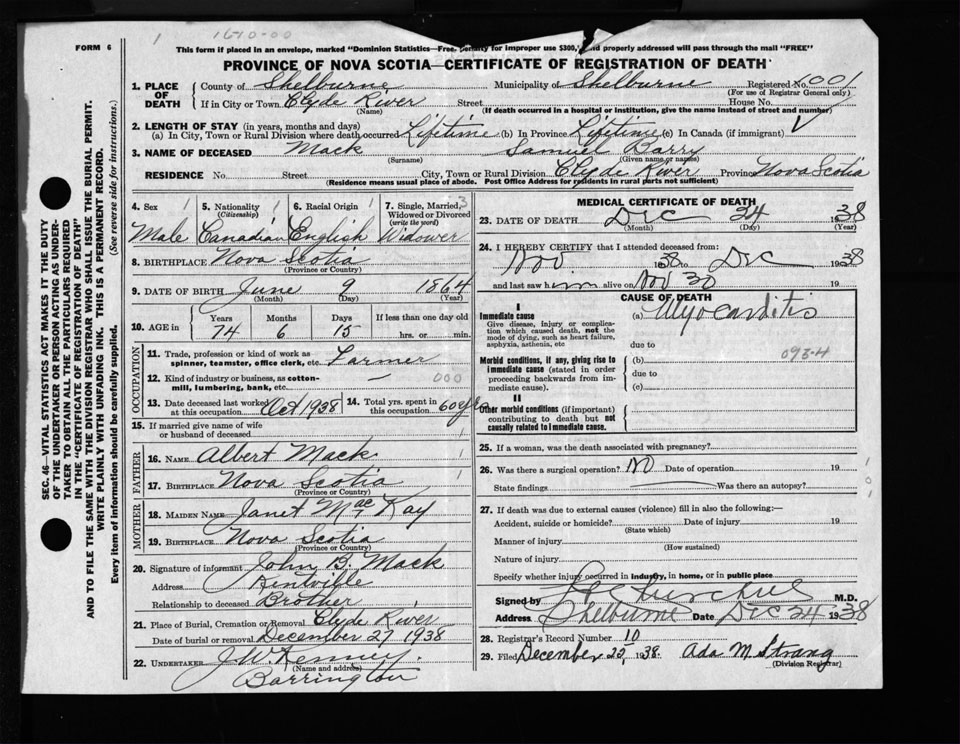 1670-00
FORM 6
This form if placed in an envelope, marked "Dominion Statistics—Free. Penalty for improper use $300," and properly addressed will pass through the mail "FREE"
PROVINCE OF NOVA SCOTIA—CERTIFICATE OF REGISTRATION OF DEATH
1. PLACE OF DEATH County of Shelburne Municipality of Shelburne Registered No. 6001
(For use of Registrar General only)
If in City or Town Clyde River Street House No.
(Name) (If death occurred in a hospital or institution, give the name instead of street and number)
2. LENGTH OF STAY (in years, months and days)
(a) In City, Town or Rural Division where death occurred Lifetime (b) In Province Lifetime (c) In Canada (if immigrant)
3. NAME OF DECEASED Mack Samuel Barry
(Surname) (Given name or names)
RESIDENCE No. Street City, Town or Rural Division Clyde River Province Nova Scotia
(Residence means usual place of abode. Post Office Address for residents in rural parts not sufficient)
4. Sex 5. Nationality (Citizenship) 6. Racial Origin 7. Single, Married, Widowed or Divorced (write the word)
Male Canadian English Widower
8. BIRTHPLACE Nova Scotia
(Province or Country)
9. DATE OF BIRTH June 9 1864
(Month) (Day) (Year)
10. AGE in Years Months Days If less than one day old
74 6 15 hrs. or min.
OCCUPATION
11. Trade, profession or kind of work as spinner, teamster, office clerk, etc. Farmer
12. Kind of industry or business, as cotton-mill, lumbering, bank, etc. — 000
13. Date deceased last worked at this occupation Oct 1938 14. Total yrs. spent in this occupation 60 yrs
15. If married give name of wife or husband of deceased
FATHER
16. NAME Albert Mack
17. BIRTHPLACE Nova Scotia
(Province or Country)
MOTHER
18. MAIDEN NAME Janet MacKay
19. BIRTHPLACE Nova Scotia
(Province or Country)
20. Signature of informant John B. Mack
Address Kentville
Relationship to deceased Brother
21. Place of Burial, Cremation or Removal Clyde River
Date of burial or removal December 27 1938
22. UNDERTAKER J. W. Kenney.
(Name and address)
Barrington
MEDICAL CERTIFICATE OF DEATH
23. DATE OF DEATH Dec 24 1938
(Month) (Day) (Year)
24. I HEREBY CERTIFY that I attended deceased from:
Nov. 1938 to Dec 1938
and last saw him alive on Nov 30 19
CAUSE OF DEATH
I
Immediate cause (a) Myocarditis
Give disease, injury or complication which caused death, not the mode of dying, such as heart failure, asphyxia, asthenia, etc
due to
093-4
Morbid conditions, if any, giving rise to immediate cause (stated in order proceeding backwards from immediate cause). (b)
due to
(c)
II
Other morbid conditions (if important) contributing to death but not causally related to immediate cause.
25. If a woman, was the death associated with pregnancy?
26. Was there a surgical operation? No Date of operation 19
State findings Was there an autopsy?
27. If death was due to external causes (violence) fill in also the following:—
Accident, suicide or homicide? Date of injury 19
(State which)
Manner of injury
(How sustained)
Nature of injury
Specify whether injury occurred in industry, in home, or in public place
Signed by M.D.
Address Shelburne Date Dec 24 1938
28. Registrar's Record Number 10
29. Filed December 25, 1938. Ada M Strang
(Division Registrar)
SEC. 46—VITAL STATISTICS ACT MAKES IT THE DUTY
OF THE UNDERTAKER OR PERSON ACTING AS UNDER-
TAKER TO OBTAIN ALL THE PARTICULARS REQUIRED
IN THE "CERTIFICATE OF REGISTRATION OF DEATH"
AND TO FILE THE SAME WITH THE DIVISION REGISTRAR WHO SHALL ISSUE THE BURIAL PERMIT.
WRITE PLAINLY WITH UNFADING INK. THIS IS A PERMANENT RECORD.
Every item of information should be carefully supplied. (See reverse side for instructions.)